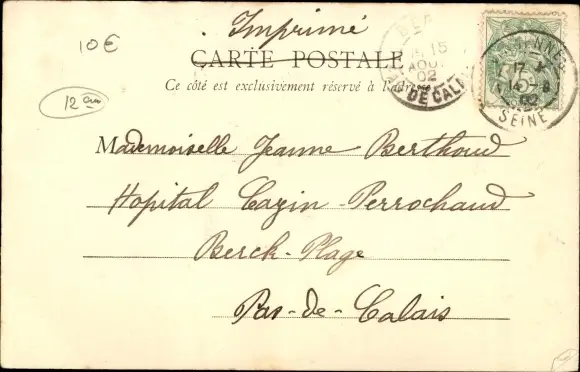 Imprimé
10€
CARTE POSTALE
Ce côté est exclusivement réservé à l'adresse
15
AOUT
02
DE CALAIS
17
02
SEINE
12
Mademoiselle Jeanne Berthoud
Hopital Cazin-Perrochaud
Berck-Plage
Pas-de-Calais